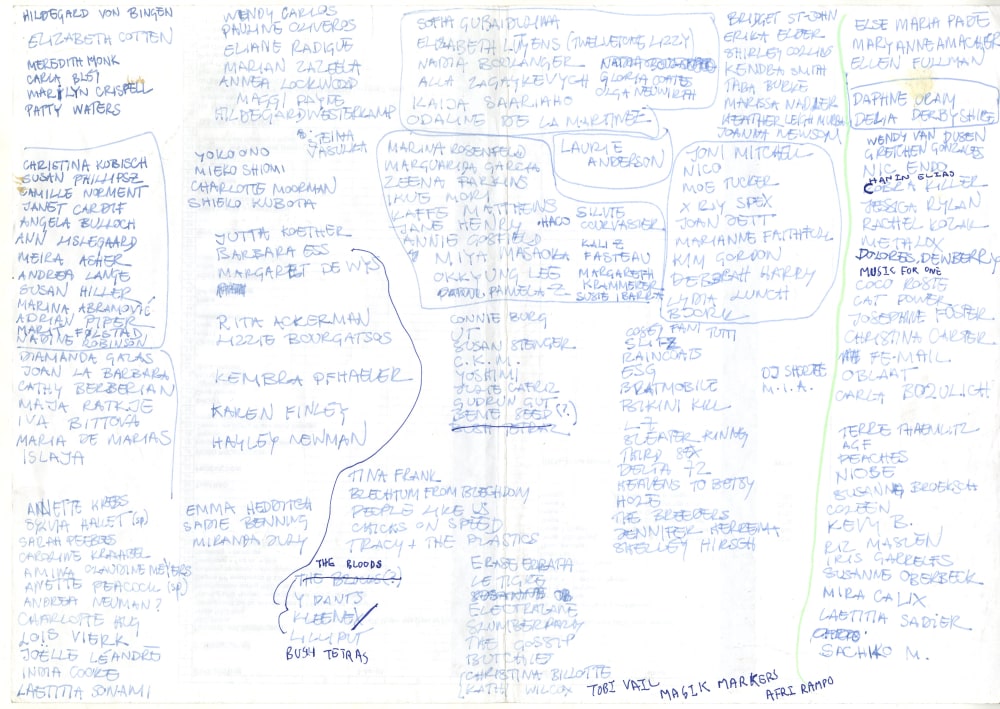 HILDEGARD VON BINGEN
ELIZABETH COTTEN
MEREDITH MONK
CARLA BLEY
MARILYN CRISPELL
PATTY WATERS
CHRISTINA KUBISCH
SUSAN PHILLIPSZ
CAMILLE NORMENT
JANET CARDIF
ANGELA BULLOCH
ANN LISLEGAARD
MEIRA ASHER
ANDREA LANGE
SUSAN HILLER
MARINA ABRAMOVIĆ
ADRIAN PIPER
MARIT FØLSTAD
NADINE ROBINSON
DIAMANDA GALAS
JOAN LA BARBARA
CATHY BERBERIAN
MAJA RATKJE
IVA BITTOVA
MARIA DE MARIAS
ISLAJA
ANNETTE KREBS
SYLVIA HALLET (sp)
SARAH PEEBLES
CAROLINE KRAABEL
AMINA CLAUDINE MEYERS
ANETTE PEACOCK (sp)
ANDREA NEUMAN?
CHARLOTTE HUG
LOIS VIERK
JOËLLE LÉANDRE
INDIA COOKE
LAETITIA SONAMI
WENDY CARLOS
PAULINE OLIVEROS
ELIANE RADIGUE
MARIAN ZAZEELA
ANNEA LOCKWOOD
MAGGI PAYNE
HILDEGARD WESTERKAMP
STEINA
VASULKA
YOKO ONO
MIEKO SHIOMI
CHARLOTTE MOORMAN
SHIEKO KUBOTA
JUTTA KOETHER
BARBARA ESS
MARGARET DE WYS
RITA ACKERMAN
LIZZIE BOURGATSOS
KEMBRA PFHAELER
KAREN FINLEY
HAYLEY NEWMAN
EMMA HEDDITCH
SADIE BENNING
MIRANDA JULY
TINA FRANK
BLECHTUM FROM BLECHDOM
PEOPLE LIKE US
CHICKS ON SPEED
TRACY + THE PLASTICS
THE BLOODS
Y PANTS
KLEENEX
LILIPUT
BUSH TETRAS
SOFIA GUBAIDULINA
ELIZABETH LUYENS (TWELVETONE LIZZY)
NADIA BOULANGER
ALLA ZAGAYKEVYCH
KAIJA SAARIAHO
ODALINE DE LA MARTINEZ
GLORIA COATES
OLGA NEUWIRTH
MARINA ROSENFELD
MARGUARIDA GARCIA
ZEENA PARKINS
IKUE MORI
KAFFE MATTHEWS
JANE HENRY
ANNIE GOSFIELD
MIYA MASAOKA
OKKYUNG LEE
PAMELA-Z
HACO
SILVIE
COURVASIER
KALI Z
FASTEAU
MARGARETH
KRAMMERER
SUSIE IBARRA
LAURIE
ANDERSON
JONI MITCHELL
NICO
MOE TUCKER
X RAY SPEX
JOAN JETT
MARIANNE FAITHFULL
KIM GORDON
DEBORAH HARRY
LYDIA LUNCH
BJORK
CONNIE BURG
UT
SUSAN STENGER
C.K.M.
YOSHIMI
GUDRUN GUT
ERASE ERRATA
LE TIGRE
ELECTRALANE
SLUMBERPARTY
THE GOSSIP
BUTCHIES
CHRISTINA BILLOTTE
KATHI WILCOX
COSEY FANI TUTTI
SLITZ
RAINCOATS
ESG
BRATMOBILE
BIKINI KILL
L-7
SLEATER KINNEY
THIRD SEX
DELTA 72
HEAVENS TO BETSY
HOLE
THE BREEDERS
JENNIFER HERREMA
SHELLEY HIRSCH
M.I.A.
TOBI VAIL
MAGIK MARKERS
AFRI RAMPO
BRIDGET ST-JOHN
ERIKA ELDER
SHIRLEY COLLINS
KENDRA SMITH
TARA BURKE
MARISSA NADLER
HEATHER LEIGH MURRAY
JOANNA NEWSOM
ELSE MARIA PADE
MARYANNE AMACHER
ELLEN FULLMAN
DAPHNE ORAM
DELIA DERBYSHIRE
WENDY VAN DUSEN
GRETCHEN GONZALES
NIC ENDO
HANIN ELIAS
COBRA KILLER
JESSICA RYLAN
RACHEL KOZAK
METALUX
DOLORES DEWBERRY
MUSIC FOR ONE
COCO ROSIE
CAT POWER
JOSEPHINE FOSTER
CHRISTINA CARTER
FE-MAIL
OBLAAT
CARLA BOZULICH
TERRE THAEMLITZ
AGF
PEACHES
NIOBE
SUSANNE BROKESCH
COLLEEN
KEVY B.
RIZ MASLEN
IRIS GARRELFS
SUSANNE OBERBECK
MIRA CALIX
LAETITIA SADIER
SACHIKO M.